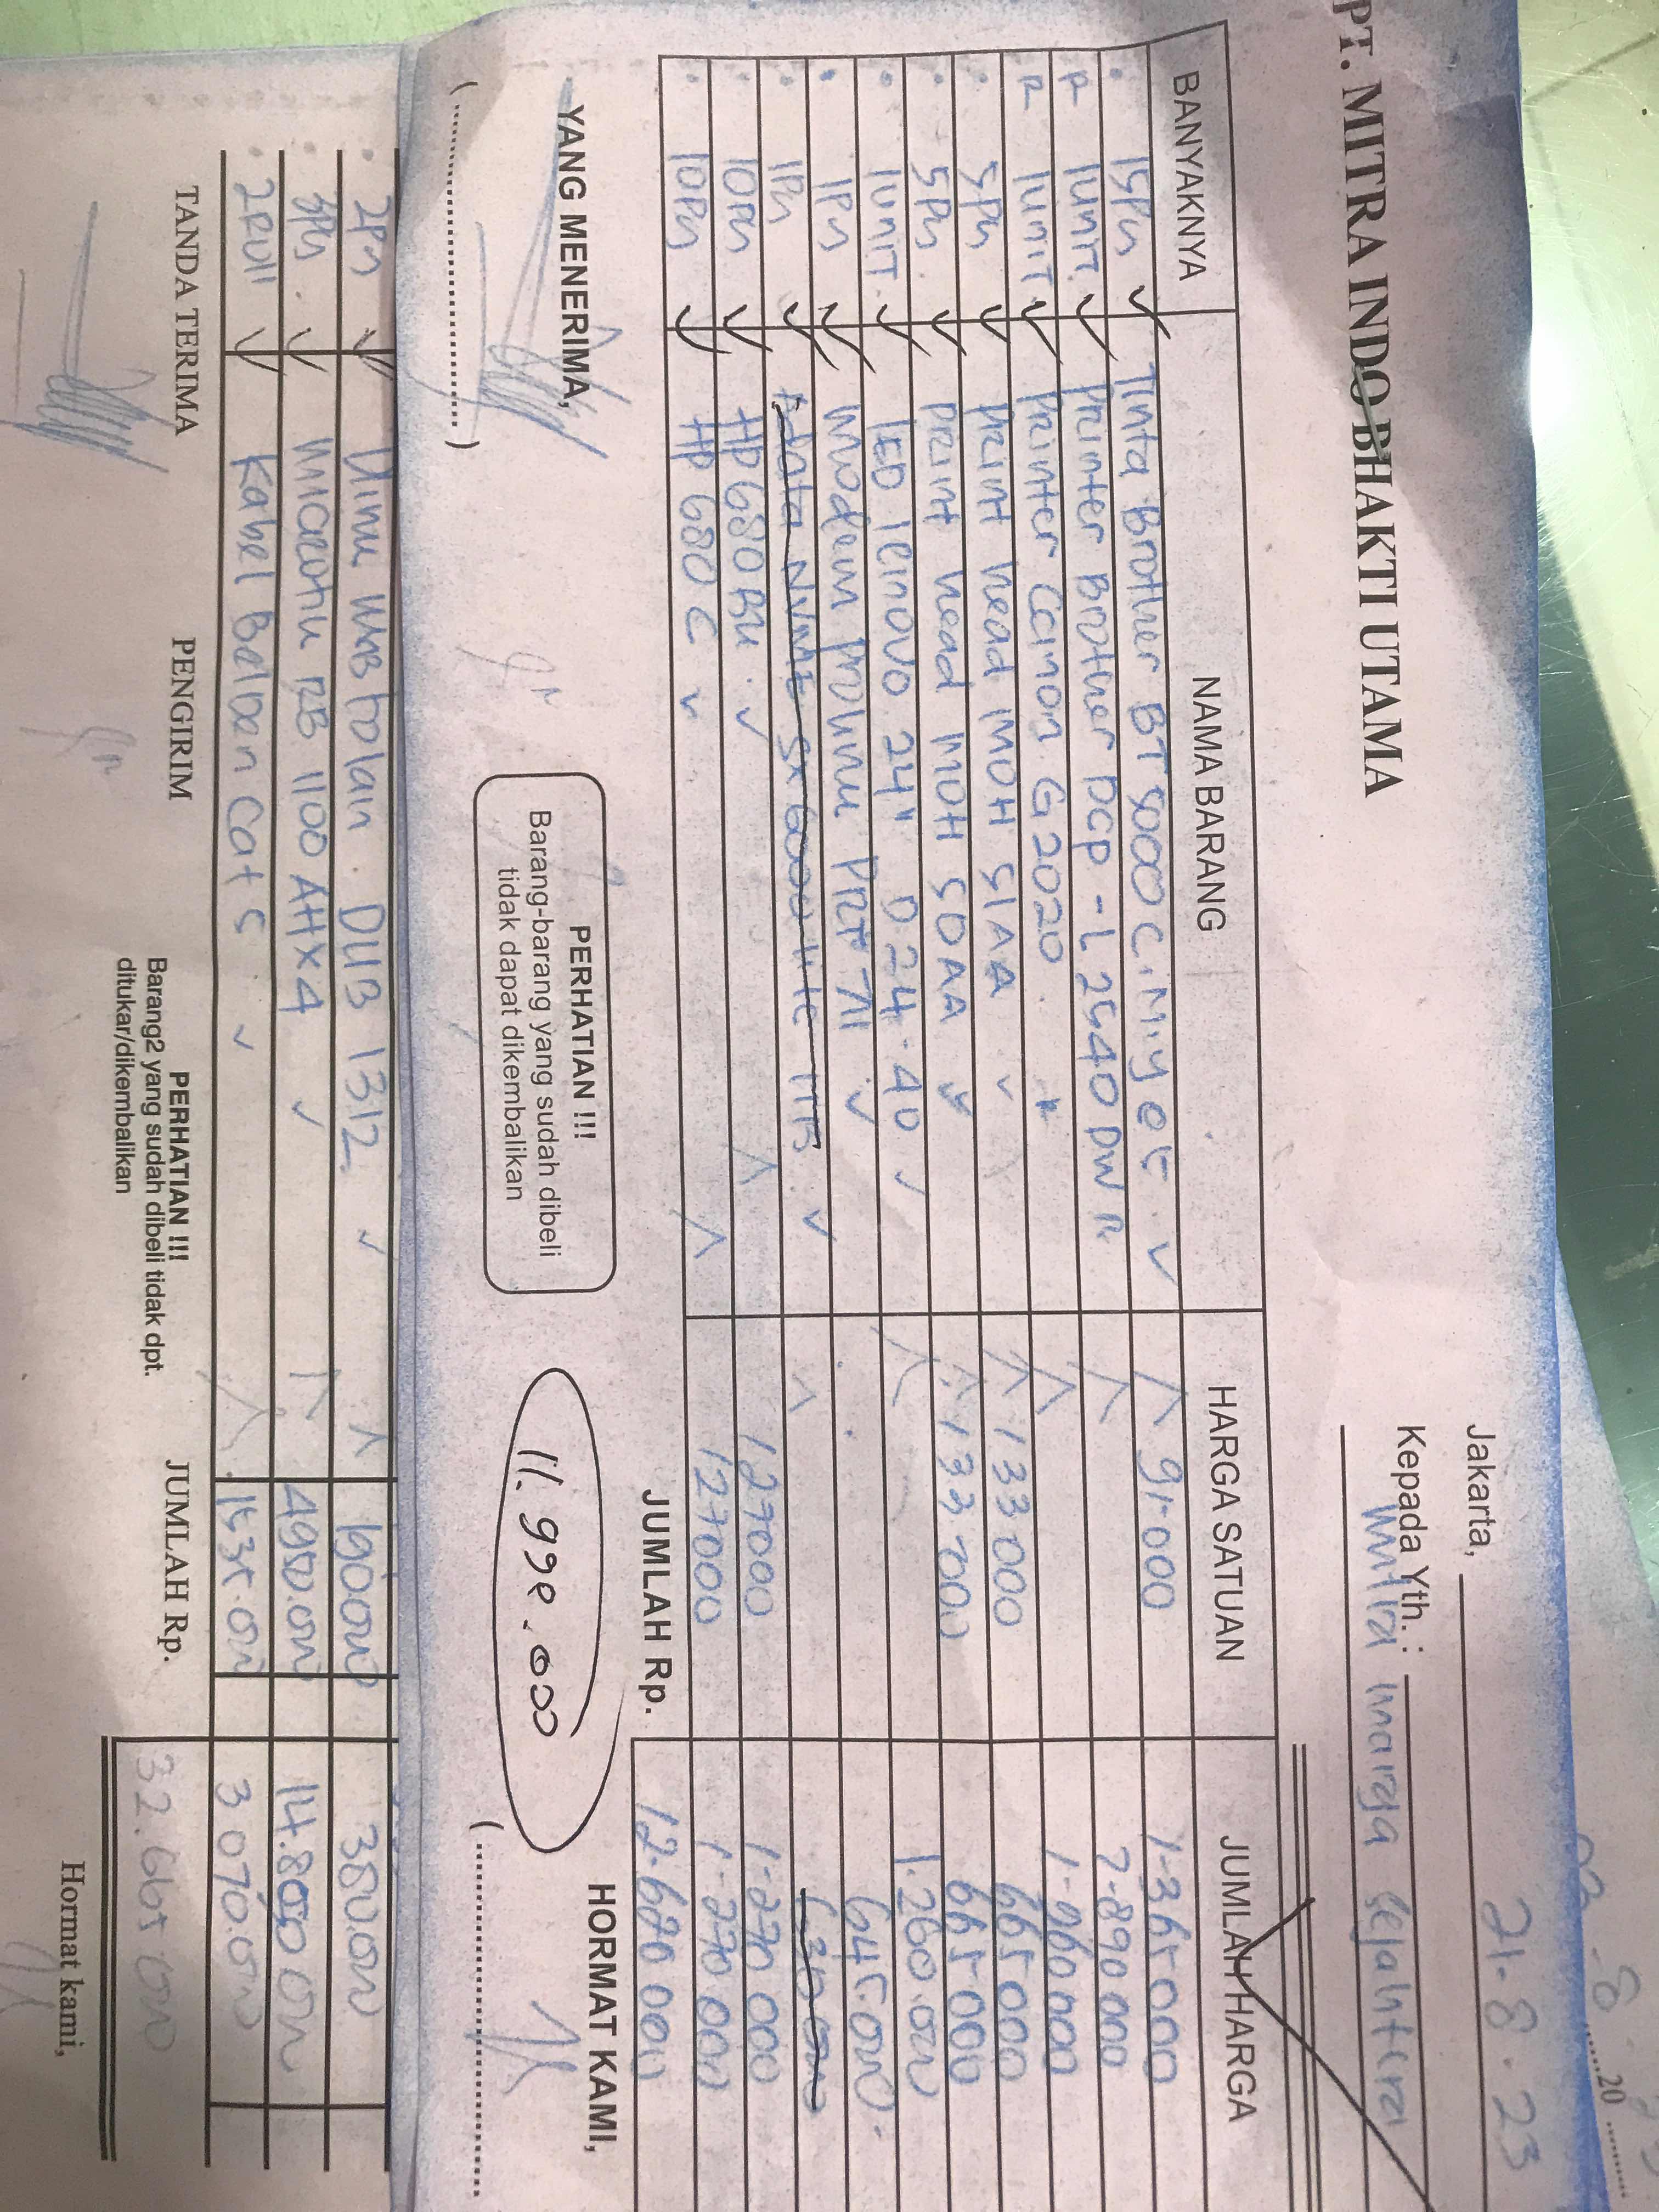 PT. MITRA INDO BHAKTI UTAMA
Jakarta, 21.8.23
Kepada Yth. :
Mitra marga sejahtera
BANYAKNYA NAMA BARANG HARGA SATUAN JUMLAH HARGA
15 Pcs Tinta Brother BT 5000 C.M.Y @5 91.000 1.365.000
1 unit Printer Brother DCP-L2540 DW 2.890.000
1 unit Printer Canon G2020 1.960.000
5 Pcs print head MOH 51AA 133.000 665.000
5 Pcs print head MOH 50AA 133.000 665.000
1 unit LED lenovo 24" D.24-40 1.260.000
1 Pcs Modem prolink PRT 711 645.000
1 Pcs Adata NVME
10 Pcs HP 680 BK 127.000 1.270.000
10 Pcs HP 680 C 127.000 1.270.000
JUMLAH Rp. 12.620.000
YANG MENERIMA,
PERHATIAN !!!
Barang-barang yang sudah dibeli
tidak dapat dikembalikan
11.990.000
HORMAT KAMI,
2 Pcs DUB 1312 190.000 380.000
3 Pcs Microtik RB 1100 AHX4 14.850.000
2 Roll Kabel Belden Cat 5 1.535.000 3.070.000
TANDA TERIMA
PENGIRIM
PERHATIAN !!!
Barang2 yang sudah dibeli tidak dpt.
ditukar/dikembalikan
JUMLAH Rp. 32.665.000
Hormat kami,
20